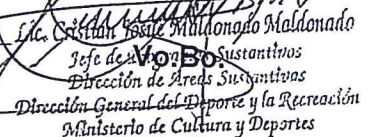 Lic. Cristian Josué Maldonado Maldonado
Jefe de Sustantivos
Vo.Bo.
Dirección de Áreas Sustantivas
Dirección General del Deporte y la Recreación
Ministerio de Cultura y Deportes